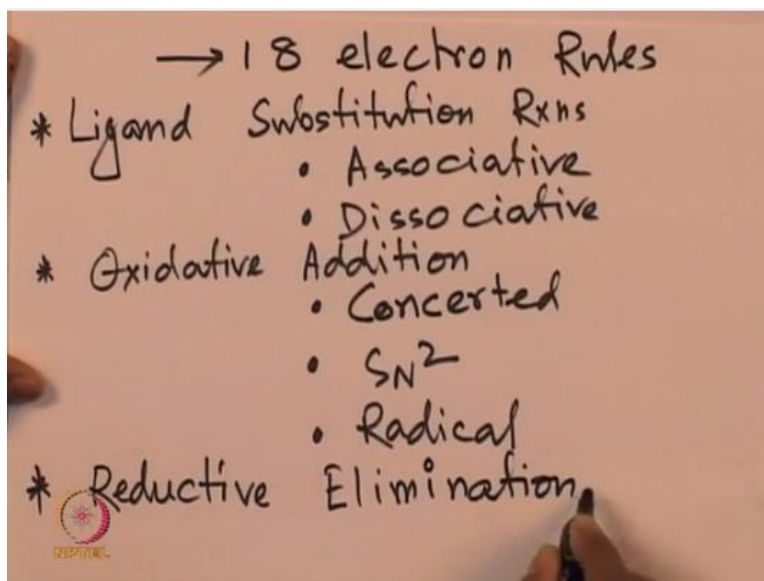 → 18 electron Rules
* Ligand Substitution Rxns
• Associative
• Dissociative
* Oxidative Addition
• Concerted
• SN2
• Radical
* Reductive Elimination
NPTEL